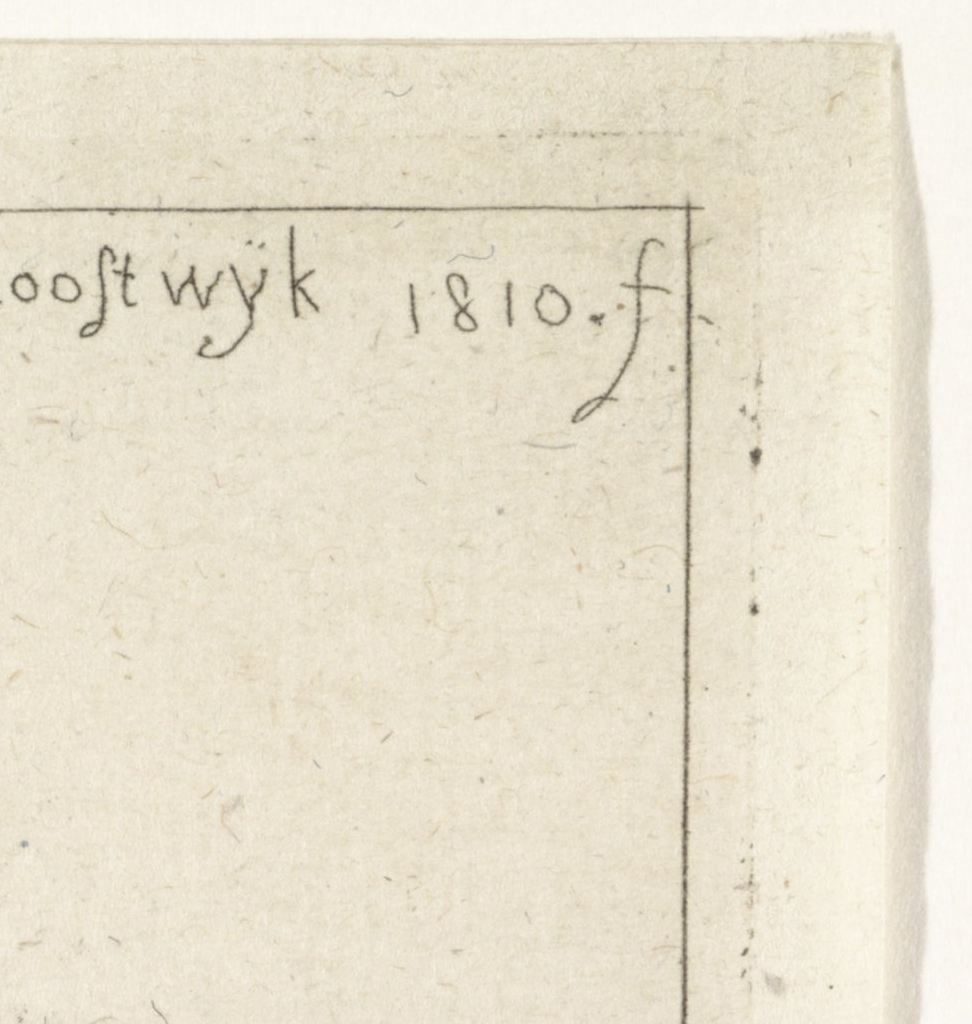 ooſtwÿk 1810. f